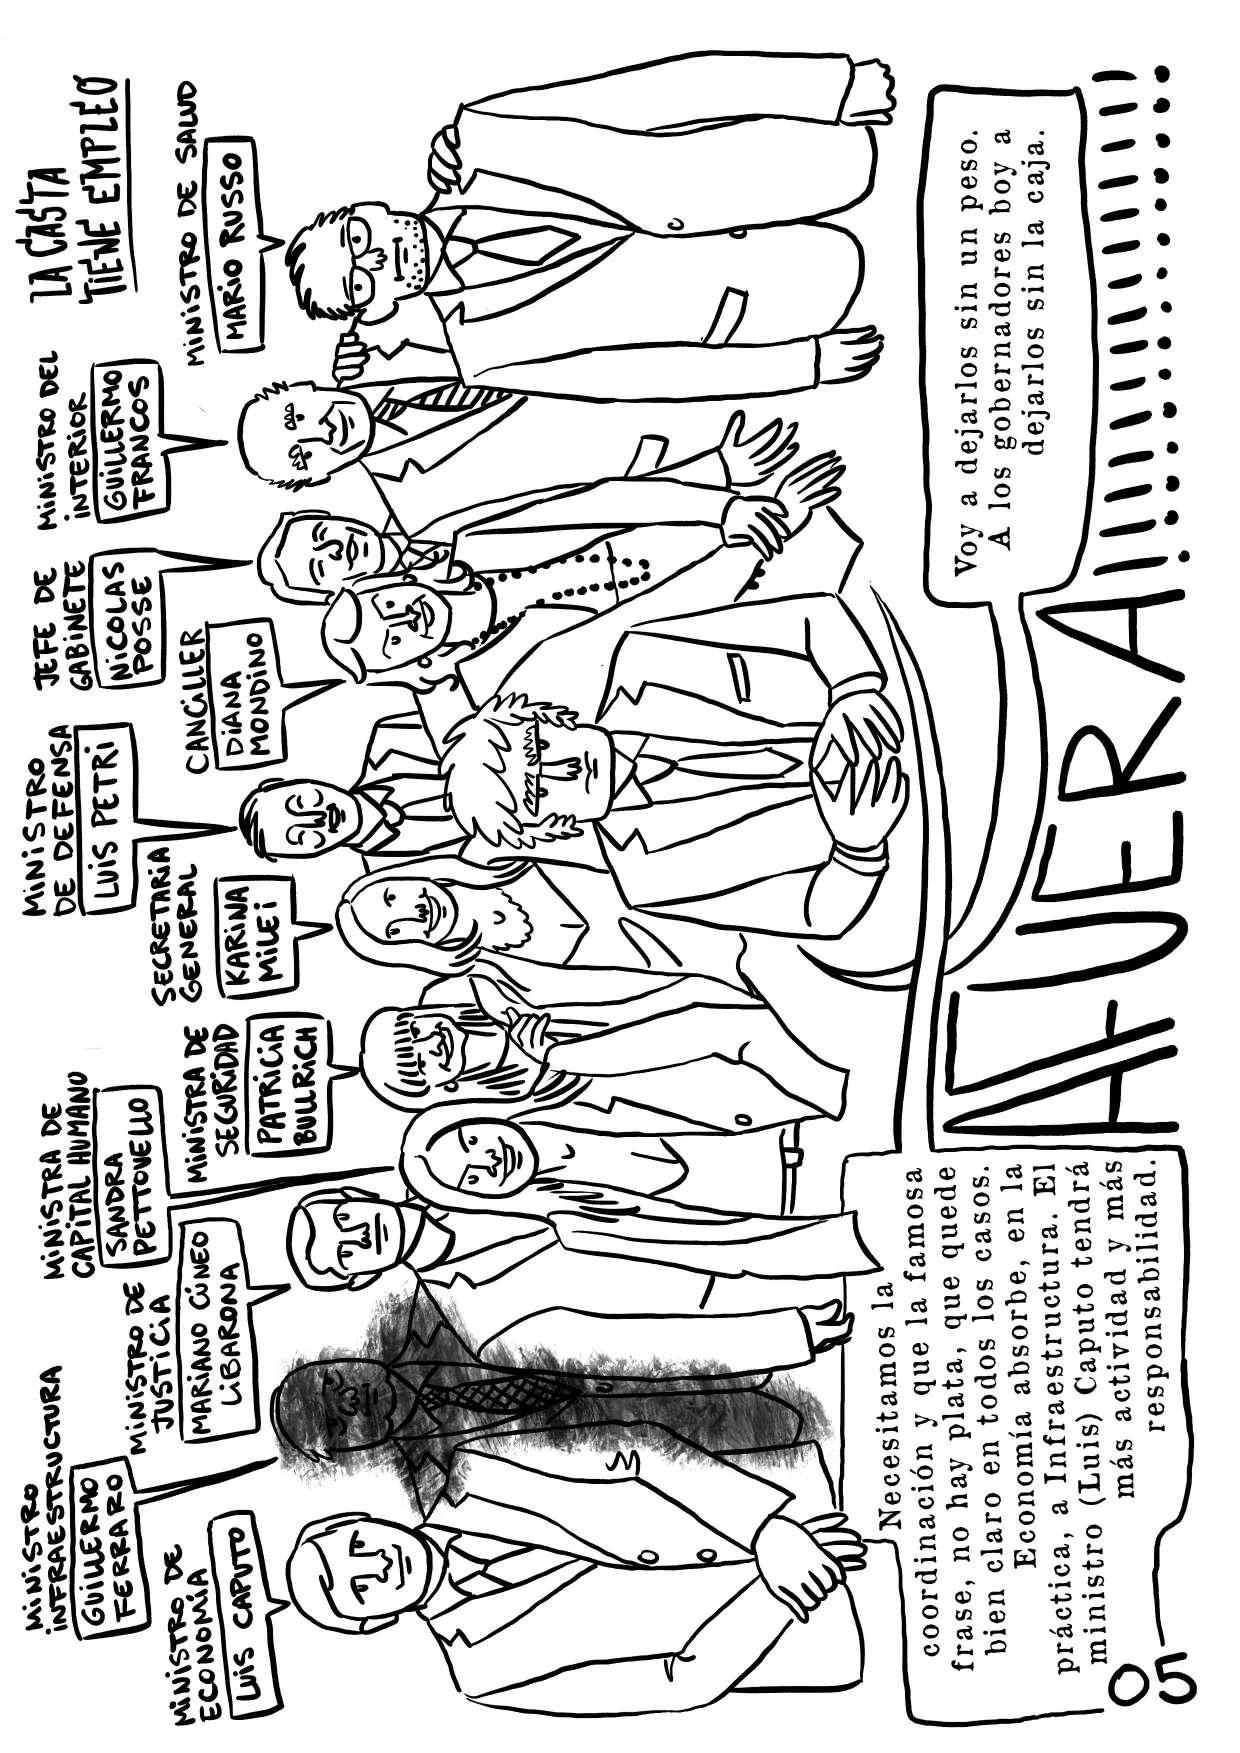 LA CASTA
TIENE EMPLEO
MINISTRO
INFRAESTRUCTURA
GUILLERMO
FERRARO
MINISTRO DE
ECONOMÍA
LUIS CAPUTO
MINISTRO DE
JUSTICIA
MARIANO CÚNEO
LIBARONA
MINISTRA DE
CAPITAL HUMANO
SANDRA
PETTOVELLO
MINISTRA DE
SEGURIDAD
PATRICIA
BULLRICH
SECRETARIA
GENERAL
KARINA
MILEI
MINISTRO
DE DEFENSA
LUIS PETRI
CANCILLER
DIANA
MONDINO
JEFE DE
GABINETE
NICOLAS
POSSE
MINISTRO DEL
INTERIOR
GUILLERMO
FRANCOS
MINISTRO DE SALUD
MARIO RUSSO
Necesitamos la
coordinación y que la famosa
frase, no hay plata, que quede
bien claro en todos los casos.
Economía absorbe, en la
práctica, a Infraestructura. El
ministro (Luis) Caputo tendrá
más actividad y más
responsabilidad.
Voy a dejarlos sin un peso.
A los gobernadores boy a
dejarlos sin la caja.
AFUERA!!!!!!!!!!!!!!
05